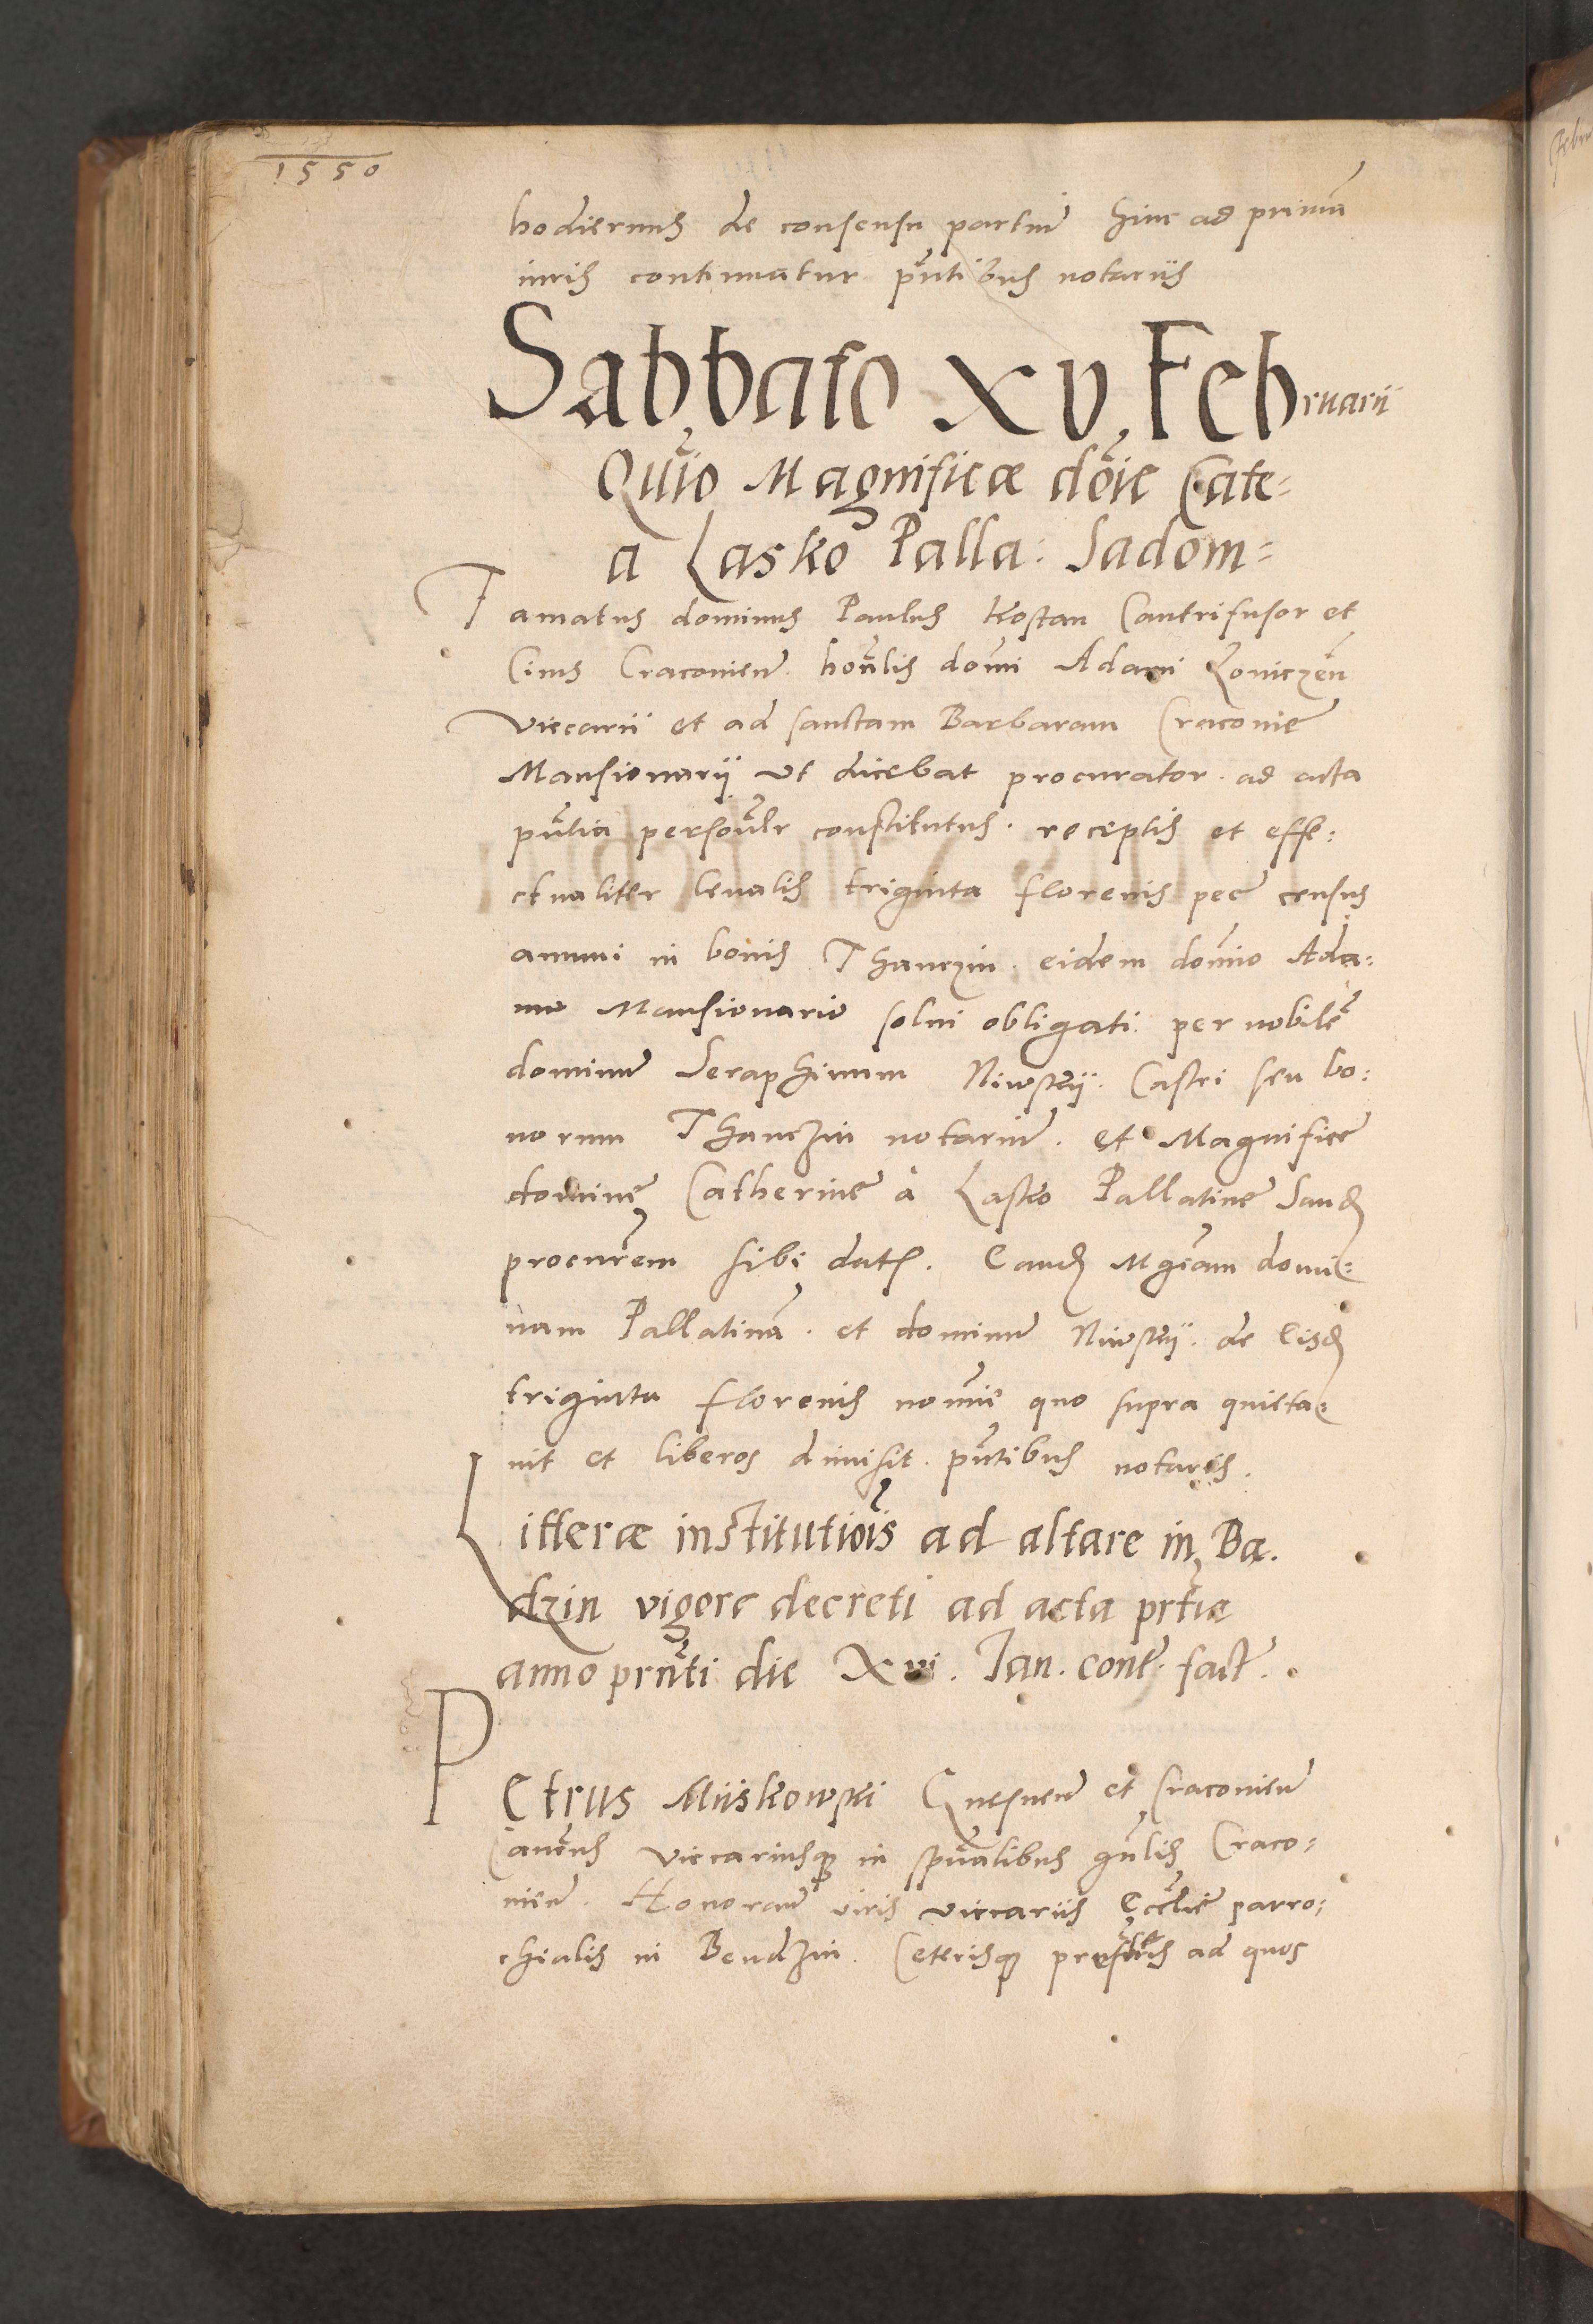 1550
hodiernus de consensu partiũ hinc ad primã
iuris continuatur pñtibus notariis
Sabbato XV. Februarii
Quĩo Magnificæ dõie Cate-
a Lasko Palla: Sadom-
Famatus dominus Paulus Kostan Cantrifusor et
Ciuis Cracovieñ. hoñlis domĩ Adami Loniczeñ
viccarii et ad sanctam Barbaram Cracovie
Mansionarij ut dicebat procurator. ad acta
pñtia persoñlr constitutus. receptis et effe:
ctualiter leuatis triginta florenis pec̃ census
annui in bonis Thanczin. eidem domĩo Ada:
mo Mansionario solui obligati. per nobilẽ
dominũ Seraphinum Niwskij. Castri seu bo:
norum Thanczin notariũ. et Magnificę
dominę Catherinę à Lasko Pallatinę Sand
procurẽm sibi dat. Eand Mgcãm domi:
nam Pallatinã. et dominũ Niwskij. de Eisd
triginta florenis nomĩe quo supra quieta-
uit et liberos dimisit. pñtibus notariis.
Litteræ institutiõis ad altare in Ba.
dzin vigore decreti ad acta prñtia
anno prñti die Xvi. Jan. cont. fact̃.
Petrus Miiskowski Gnesneñ et Cracovieñ
Canõcus viccariusqȝ in spũalibus gñlis Craco:
vieñ. Honorañ viris viccariis Ecclie parro:
chialis in Bendzin. Ceterisqȝ ad quos